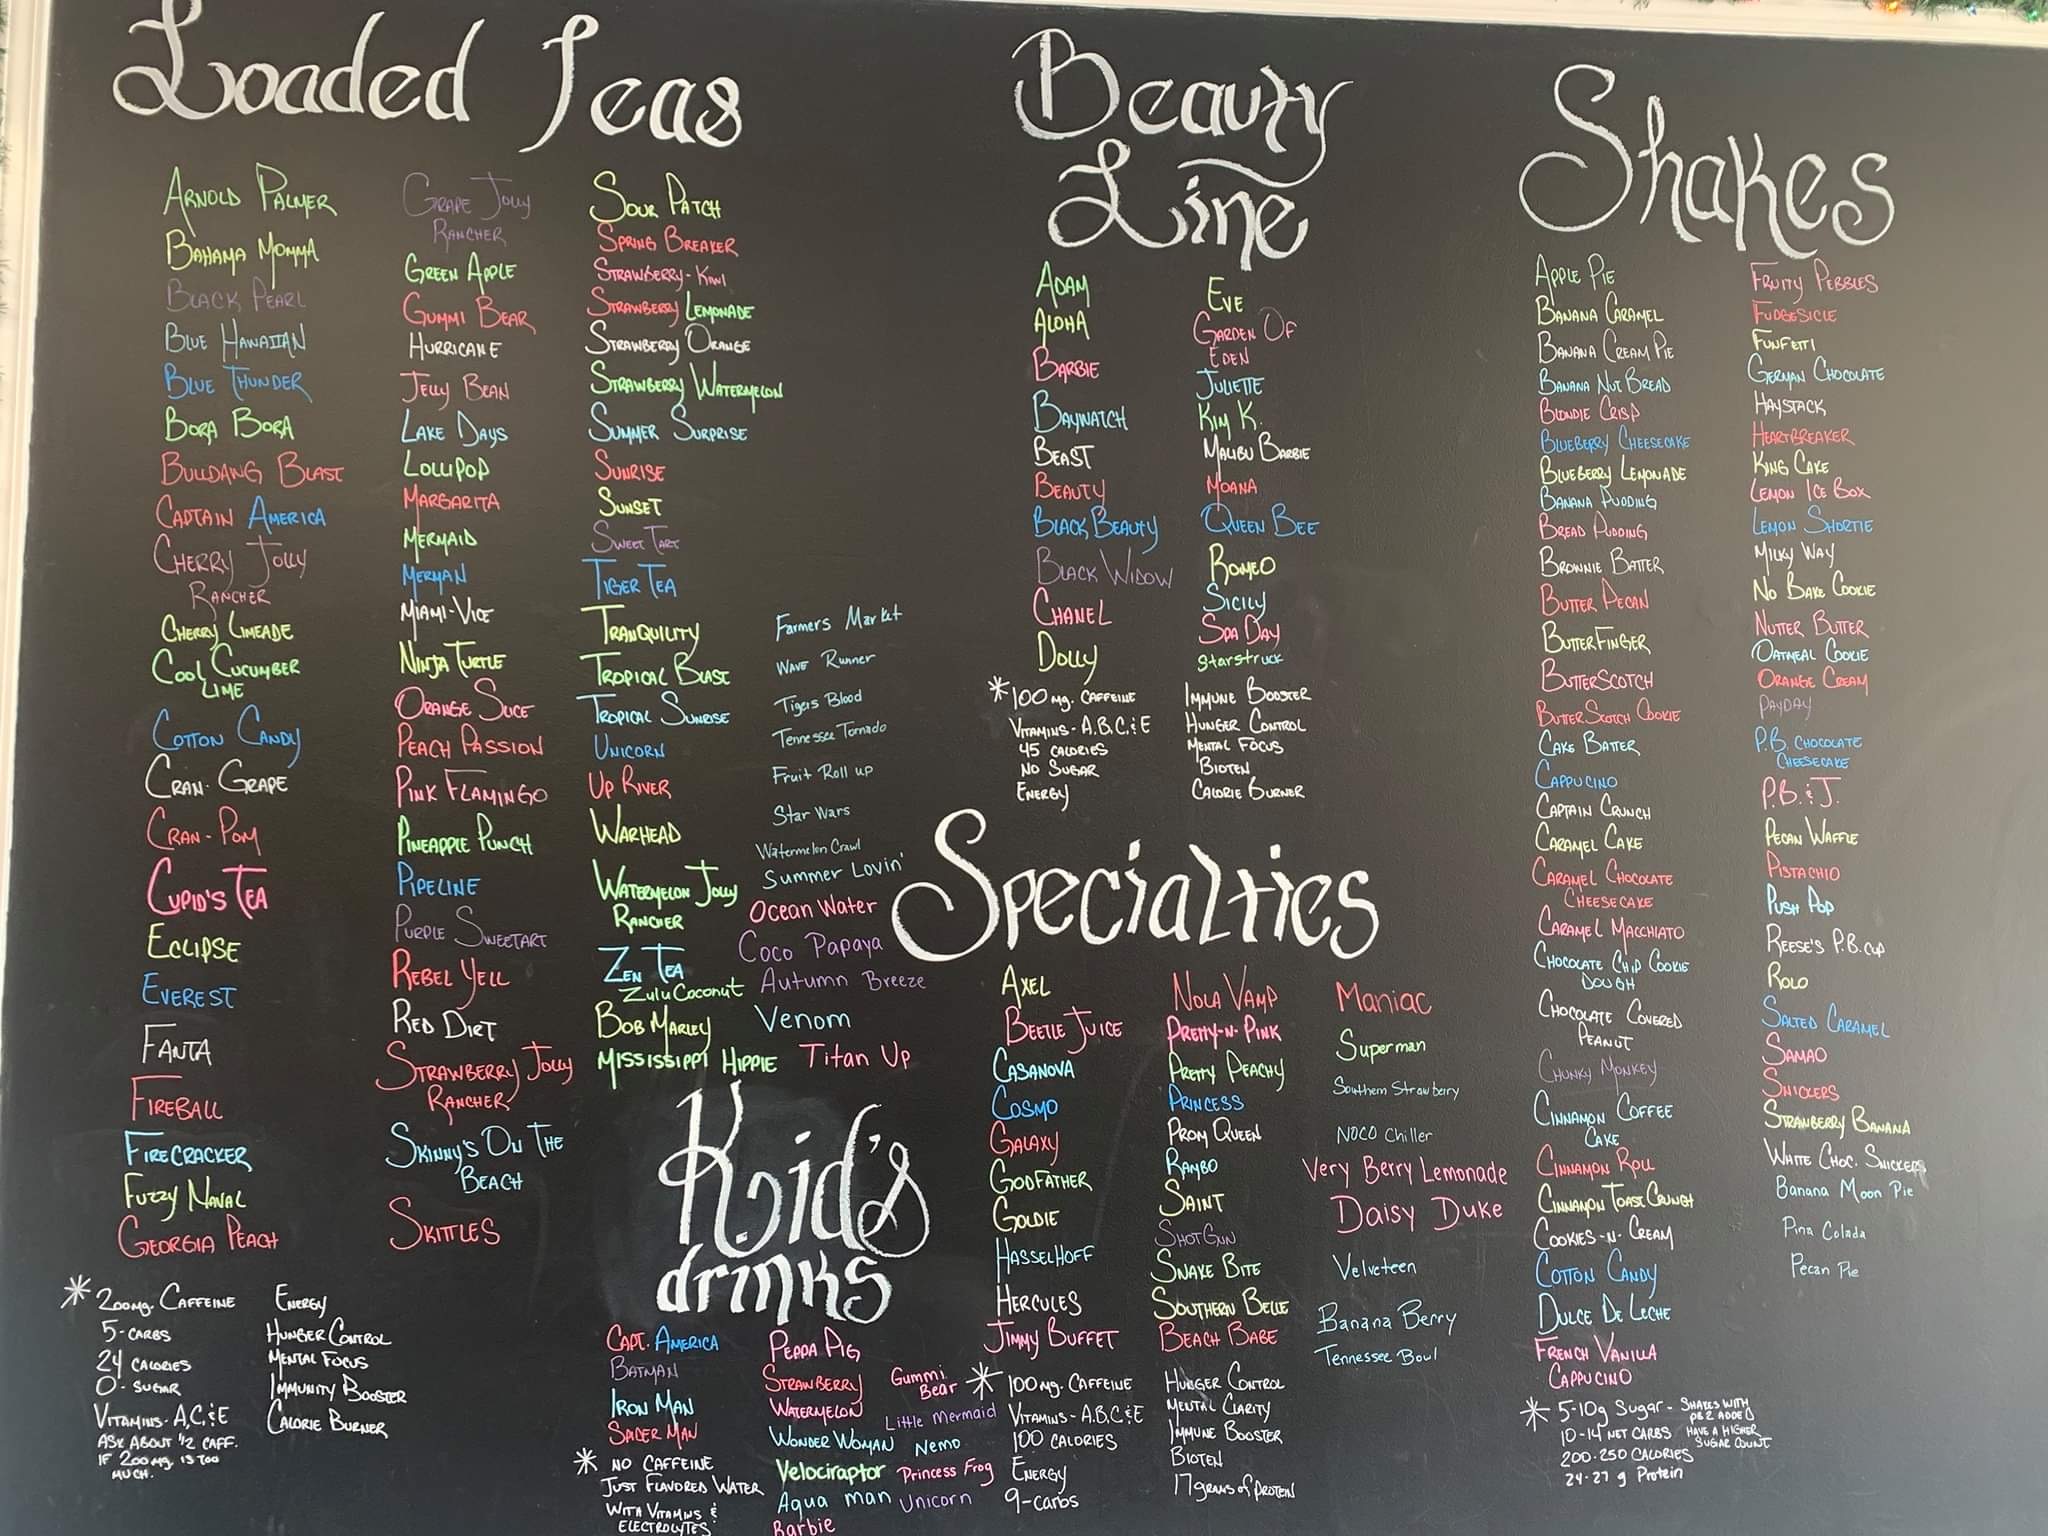 Loaded Teas
Arnold Palmer
Bahama Momma
Black Pearl
Blue Hawaiian
Blue Thunder
Bora Bora
Bulldawg Blast
Captain America
Cherry Jolly
Rancher
Cherry Limeade
Cool Cucumber
Lime
Cotton Candy
Cran-Grape
Cran-Pom
Cupid's Tea
Eclipse
Everest
Fanta
Fireball
Firecracker
Fuzzy Naval
Georgia Peach
Grape Jolly
Rancher
Green Apple
Gummi Bear
Hurricane
Jelly Bean
Lake Days
Lollipop
Margarita
Mermaid
Merman
Miami-Vice
Ninja Turtle
Orange Slice
Peach Passion
Pink Flamingo
Pineapple Punch
Pipeline
Purple Sweetart
Rebel Yell
Red Dirt
Strawberry Jolly
Rancher
Skinny's On The
Beach
Skittles
Sour Patch
Spring Breaker
Strawberry-Kiwi
Strawberry Lemonade
Strawberry Orange
Strawberry Watermelon
Summer Surprise
Sunrise
Sunset
Sweet Tart
Tiger Tea
Tranquility
Tropical Blast
Tropical Sunrise
Unicorn
Up River
Warhead
Watermelon Jolly
Rancher
Zen Tea
Zulu Coconut
Bob Marley
Mississippi Hippie
Farmers Market
Wave Runner
Tigers Blood
Tennessee Tornado
Fruit Roll up
Star Wars
Watermelon Crawl
Summer Lovin'
Ocean Water
Coco Papaya
Autumn Breeze
Venom
Titan Up
* 200mg. Caffeine
5-carbs
24 calories
0-sugar
Vitamins-A,C,&E
Ask about 1/2 caff.
if 200mg. is too
much.
Energy
Hunger Control
Mental Focus
Immunity Booster
Calorie Burner
Kid's
drinks
Capt. America
Batman
Iron Man
Spider Man
* No Caffeine
Just Flavored Water
With Vitamins &
Electrolytes
Peppa Pig
Strawberry
Watermelon
Wonder Woman
Velociraptor
Aqua man
Barbie
Gummi
Bear
Little Mermaid
Nemo
Princess Frog
Unicorn
Beauty
Line
Adam
Aloha
Barbie
Baywatch
Beast
Beauty
Black Beauty
Black Widow
Chanel
Dolly
Eve
Garden Of
Eden
Juliette
Kim K.
Malibu Barbie
Moana
Queen Bee
Romeo
Sicily
Spa Day
Starstruck
* 100 mg. Caffeine
Vitamins-A.B.C.&E
45 calories
No Sugar
Energy
Immune Booster
Hunger Control
Mental Focus
Bioten
Calorie Burner
Specialties
Axel
Beetle Juice
Casanova
Cosmo
Galaxy
Godfather
Goldie
Hasselhoff
Hercules
Jimmy Buffet
Nola Vamp
Pretty-n-Pink
Pretty Peachy
Princess
Prom Queen
Rambo
Saint
Shotgun
Snake Bite
Southern Belle
Beach Babe
Maniac
Superman
Southern Strawberry
NOCO Chiller
Very Berry Lemonade
Daisy Duke
Velveteen
Banana Berry
Tennessee Bowl
* 100mg. Caffeine
Vitamins-A.B.C&E
100 calories
Energy
9-carbs
Hunger Control
Mental Clarity
Immune Booster
Bioten
17grams of Protein
Shakes
Apple Pie
Banana Caramel
Banana Cream Pie
Banana Nut Bread
Blondie Crisp
Blueberry Cheesecake
Blueberry Lemonade
Banana Pudding
Bread Pudding
Brownie Batter
Butter Pecan
ButterFinger
ButterScotch
ButterScotch Cookie
Cake Batter
Cappucino
Captain Crunch
Caramel Cake
Caramel Chocolate
Cheesecake
Caramel Macchiato
Chocolate Chip Cookie
Dough
Chocolate Covered
Peanut
Chunky Monkey
Cinnamon Coffee
Cake
Cinnamon Roll
Cinnamon Toast Crunch
Cookies-n-Cream
Cotton Candy
Dulce De Leche
French Vanilla
Cappucino
Fruity Pebbles
Fudgesicle
Funfetti
German Chocolate
Haystack
Heartbreaker
King Cake
Lemon Ice Box
Lemon Shortie
Milky Way
No Bake Cookie
Nutter Butter
Oatmeal Cookie
Orange Cream
Payday
P.B. Chocolate
Cheesecake
P.B.&J.
Pecan Waffle
Pistachio
Push Pop
Reese's P.B. cup
Rolo
Salted Caramel
Samao
Snickers
Strawberry Banana
White Choc. Snickers
Banana Moon Pie
Pina Colada
Pecan Pie
* 5-10g Sugar - Shakes with
PB2 added
10-14 net carbs have a higher
sugar count
200-250 calories
24-27 g Protein